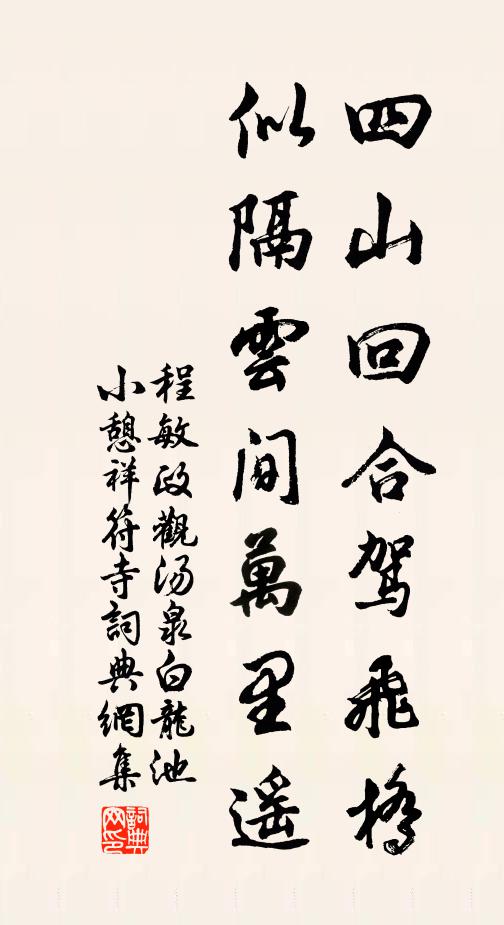 四山回合駕飛橋
似隔雲間萬里遥
程敏政觀湯泉白龍池
小憩祥符寺詞典網集
詞典
网印